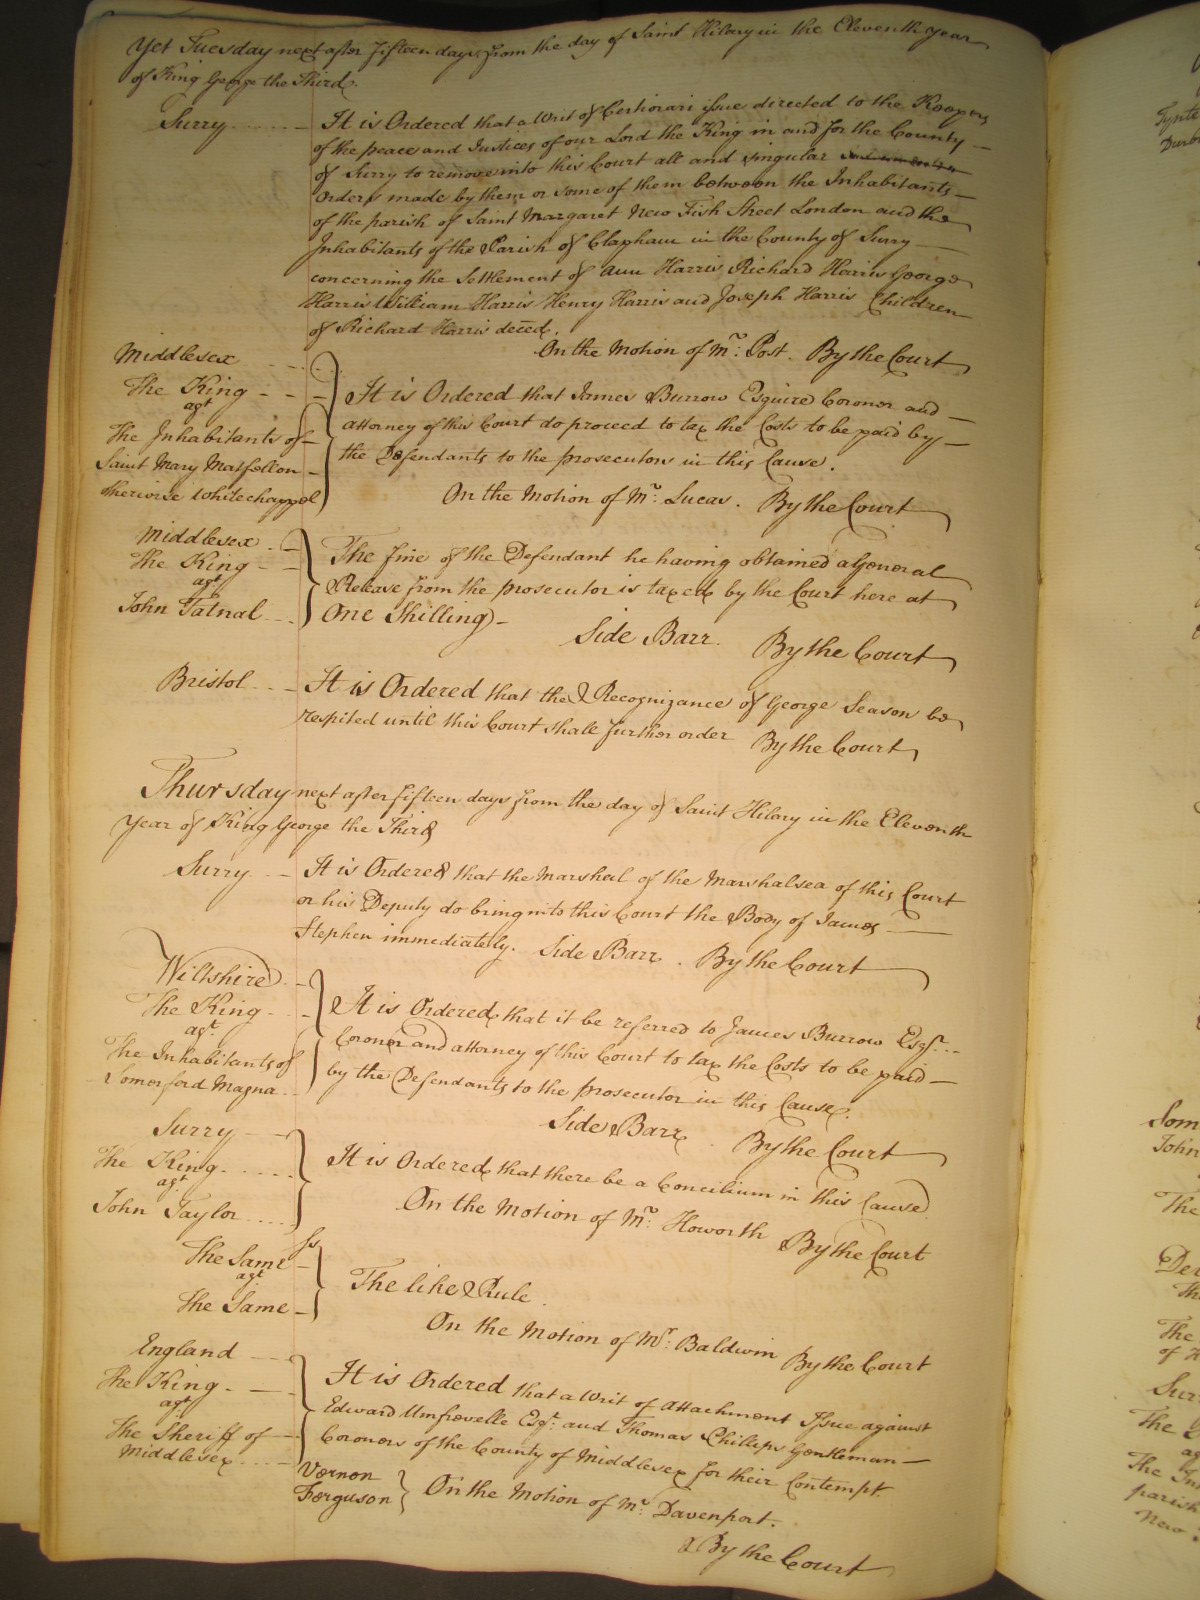 Yet Tuesday next after fifteen days from the day of Saint Hilary in the Eleventh year
of King George the Third.
Surry It is Ordered that a Writ of Certiorari issue directed to the Keepers
of the peace and Justices of our Lord the King in and for the County
of Surry to remove into this Court all and singular
Orders made by them or some of them between the Inhabitants
of the parish of Saint Margaret New Fish Street London and the
Inhabitants of the Parish of Clapham in the County of Surry
concerning the Settlement of Ann Harris Richard Harris George
Harris William Harris Henry Harris and Joseph Harris Children
of Richard Harris deced.
On the Motion of Mr. Post. By the Court
Middlesex
The King
agt
The Inhabitants of
Saint Mary Matfellon
otherwise Whitechappel
It is Ordered that James Burrow Esquire Coroner and
attorney of this Court do proceed to tax the Costs to be paid by
the Defendants to the prosecutors in this Cause.
On the Motion of Mr. Lucas. By the Court
Middlesex
The King
agt
John Tatnal
The fine of the Defendant he having obtained a General
Release from the prosecutor is taxed by the Court here at
One Shilling
Side Barr. By the Court
Bristol It is Ordered that the Recognizance of George Season be
respited until this Court shall further order By the Court
Thursday next after fifteen days from the day of Saint Hilary in the Eleventh
Year of King George the Third
Surry It is Ordered that the Marshal of the Marshalsea of this Court
or his Deputy do bring into this Court the Body of James
Stephen immediately. Side Barr. By the Court
Wiltshire
The King
agt.
The Inhabitants of
Somerford Magna
It is Ordered that it be referred to James Burrow Esqr.
Coroner and attorney of this Court to tax the Costs to be paid
by the Defendants to the prosecutor in this Cause.
Side Barr By the Court
Surry
The King
agt
John Taylor
It is Ordered that there be a Concilium in this Cause
On the Motion of Mr. Howorth By the Court
The Same
agt
The Same
ss
The like Rule.
On the Motion of Mr. Baldwin By the Court
England
The King
agt
The Sheriff of
Middlesex
It is Ordered that a Writ of Attachment Issue against
Edward Umfrevelle Esqr. and Thomas Phillips Gentleman
Coroners of the County of Middlesex for their Contempt.
Vernon
Ferguson
On the Motion of Mr. Davenport.
By the Court